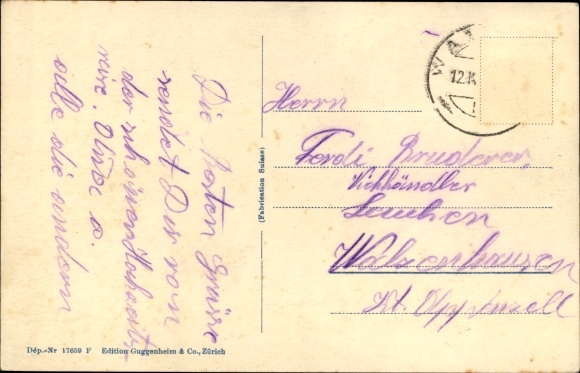 Die besten Grüsse
sendet Dir von
der schönen Hochzeits-
reise. Olinde u.
alle die andern
(Fabrication Suisse)
WA
12.
Herrn
Ferdi Bruderer,
Viehhändler
Lachen
Walzenhausen
Kt. Appenzell
Dép.-Nr 17659 F Edition Guggenheim & Co., Zürich